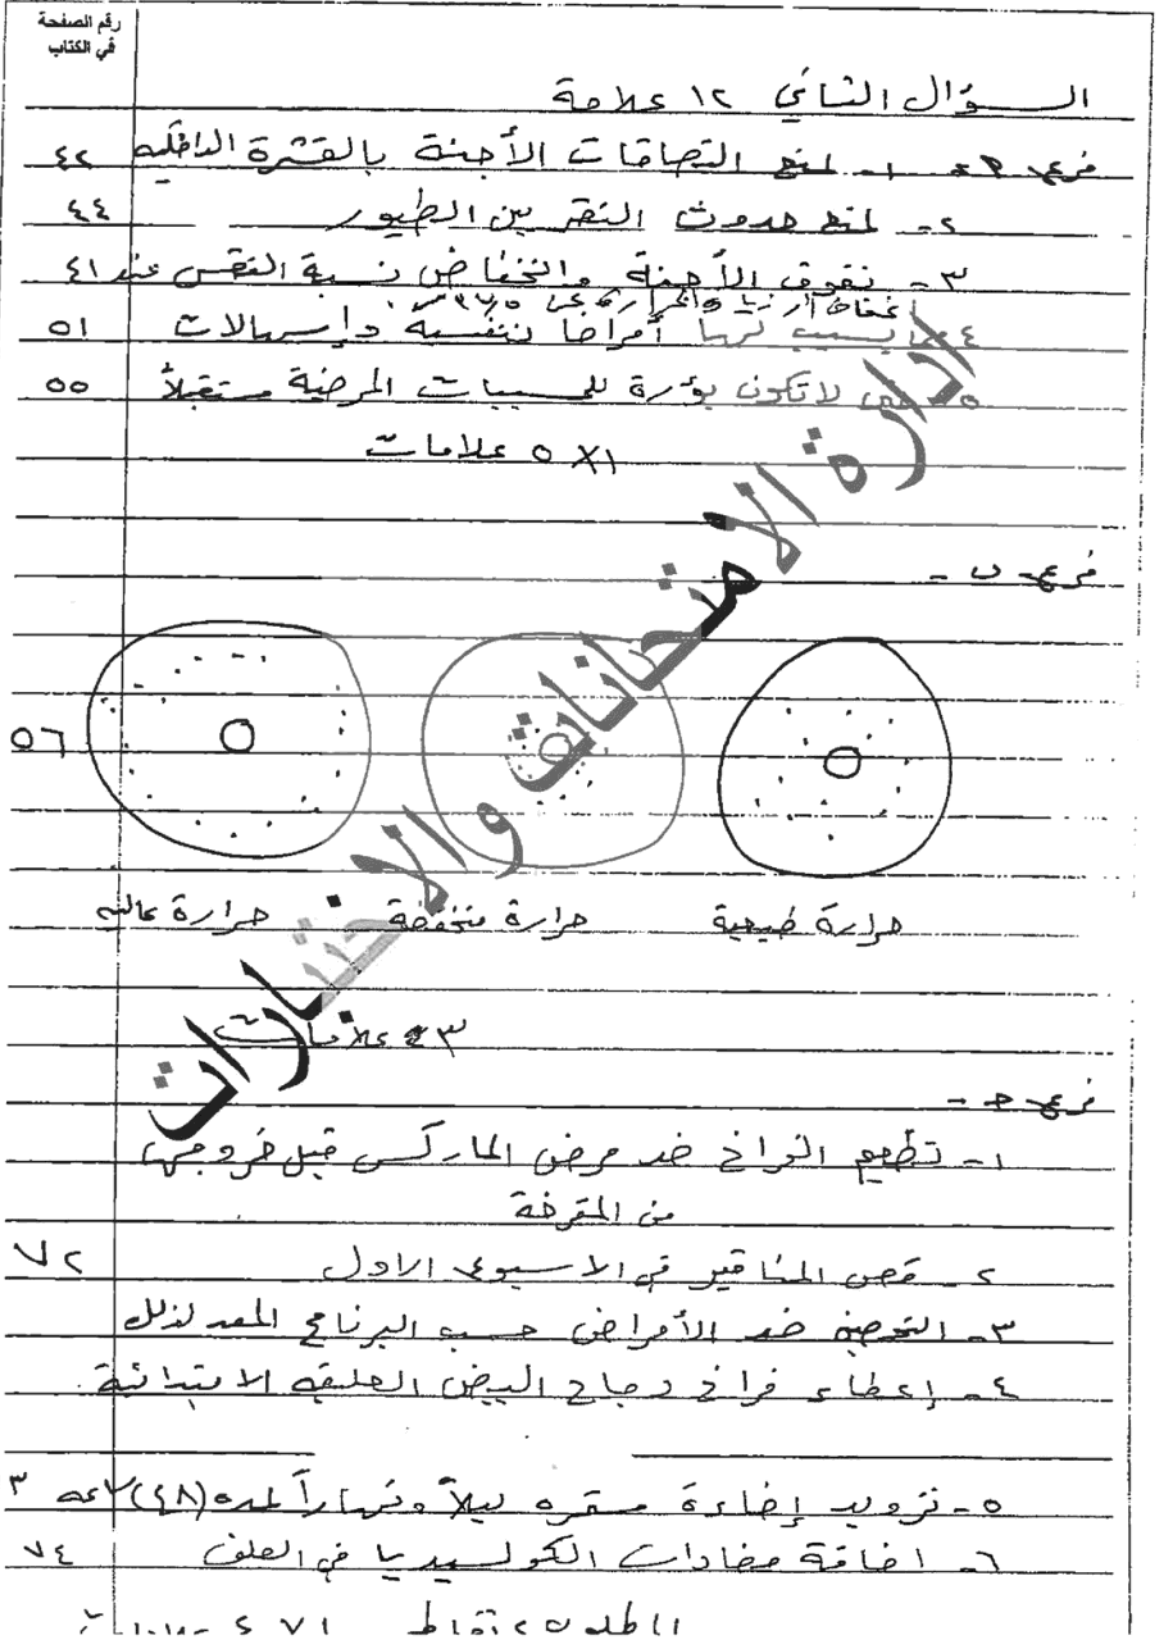 رقم الصفحة
في الكتاب
السؤال الثاني ١٢ علامة
فرع ١- لمنع التصاقات الأجنة بالقشرة الداخلية ٤٢
٢- لمنع حدوث النقر بين الطيور ٤٤
٣- نفوق الأجنة وانخفاض نسبة الفقس عند ٤١
انخفاض أو زيادة الحرارة عن ٣٧٫٥
٤- مما يسبب لها أمراضا تنفسية وإسهالات ٥١
٥- حتى لا تكون بؤرة للمسببات المرضية مستقبلاً ٥٥
١×٥ علامات
فرع ب -
٥٦
حرارة طبيعية حرارة منخفضة حرارة عالية
٣ علامات
فرع ج -
١- تطعيم الفراخ ضد مرض الماركس قبل خروجها
من المفرخة
٢- قص المناقير في الاسبوع الاول ٧٢
٣- التحصين ضد الأمراض حسب البرنامج المعد لذلك
٤- إعطاء فراخ دجاج البيض العليقة الابتدائية
٥- تزويد إضاءة مستمرة ليلاً ونهاراً لمدة (٤٨) ساعة ٧٣
٦- اضافة مضادات الكوكسيديا في العلف ٧٤
المطلوب نقاط
ادارة الامتحانات والاختبارات